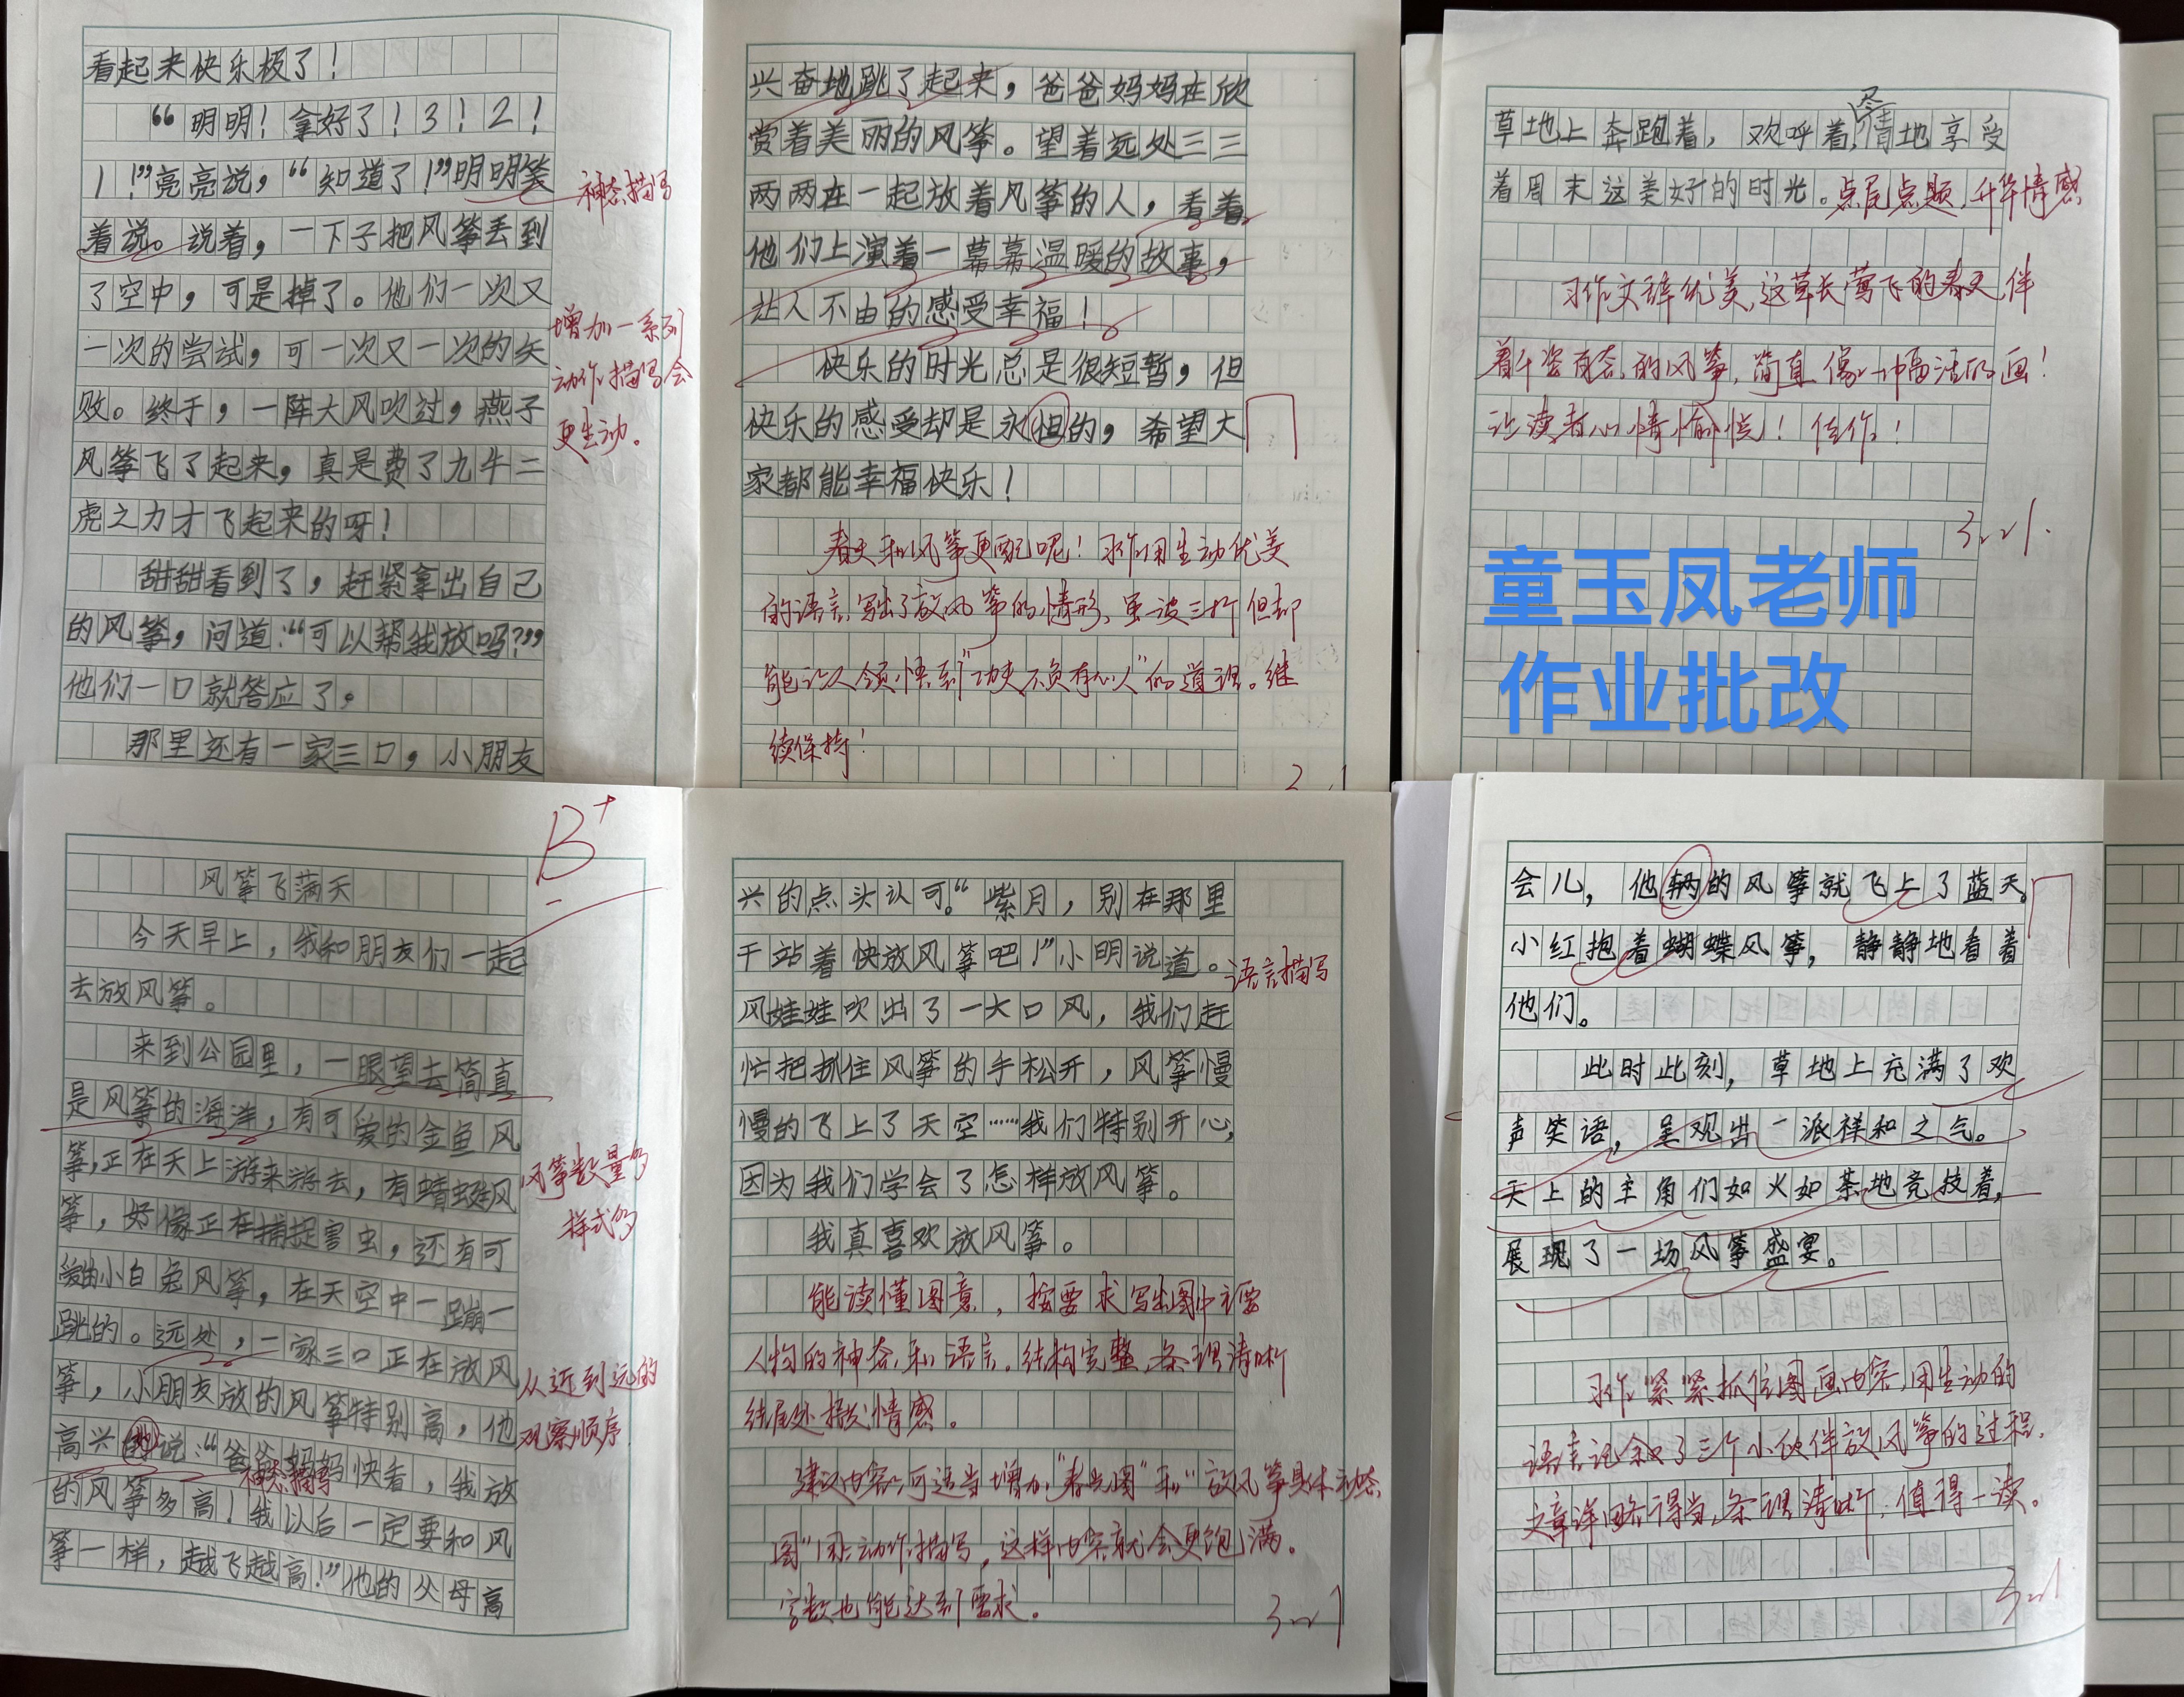 看起来快乐极了！
“明明！拿好了！3！2！
1！”亮亮说，“知道了！”明明笑
神态描写
着说。说着，一下子把风筝丢到
了空中，可是掉了。他们一次又
一次的尝试，可一次又一次的失
败。终于，一阵大风吹过，燕子
风筝飞了起来，真是费了九牛二
虎之力才飞起来的呀！
增加一系列
动作描写会
更生动。
甜甜看到了，赶紧拿出自己
的风筝，问道：“可以帮我放吗？”
他们一口就答应了。
那里还有一家三口，小朋友
兴奋地跳了起来，爸爸妈妈在欣
赏着美丽的风筝。望着远处三三
两两在一起放着风筝的人，看着
他们上演着一幕幕温暖的故事，
让人不由的感受幸福！
快乐的时光总是很短暂，但
快乐的感受却是永恒的，希望大
家都能幸福快乐！
春天和风筝更配呢！习作用生动优美
的语言，写出了放风筝的情形，虽一波三折但却
能让人领悟到“功夫不负有心人”的道理。继
续保持！
草地上奔跑着，欢呼着，尽情地享受
着周末这美好的时光。点尾点题，升华情感
习作文辞优美，这草长莺飞的春天伴
着千姿百态的风筝，简直像一幅活的画！
让读者心情愉悦！佳作！
3.21.
童玉凤老师
作业批改
B+
风筝飞满天
今天早上，我和朋友们一起
去放风筝。
来到公园里，一眼望去简直
是风筝的海洋，有可爱的金鱼风
筝，正在天上游来游去，有蜻蜓风
筝，好像正在捕捉害虫，还有可
爱的小白兔风筝，在天空中一蹦一
跳的。远处，一家三口正在放风
筝，小朋友放的风筝特别高，他
高兴地说：“爸爸妈妈快看，我放
的风筝多高！我以后一定要和风
筝一样，越飞越高！”他的父母高
风筝数量多
样式多
从近到远的
观察顺序
神态描写
兴的点头认可。“紫月，别在那里
干站着快放风筝吧！”小明说道。
语言描写
风娃娃吹出了一大口风，我们赶
忙把抓住风筝的手松开，风筝慢
慢的飞上了天空……我们特别开心，
因为我们学会了怎样放风筝。
我真喜欢放风筝。
能读懂图意，按要求写出图中主要
人物的神态和语言。结构完整，条理清晰
结尾处抒发情感。
建议内容可适当增加“春光图”和“放风筝具体动态
图”用动作描写，这样内容就会更饱满。
字数也能达到要求。
3.21
会儿，他俩的风筝就飞上了蓝天。
小红抱着蝴蝶风筝，静静地看着
他们。
此时此刻，草地上充满了欢
声笑语，呈观出一派祥和之气。
天上的主角们如火如荼地竞技着，
展现了一场风筝盛宴。
习作紧紧抓住图画内容，用生动的
语言记叙了三个小伙伴放风筝的过程，
文章详略得当，条理清晰，值得一读。
3.21.